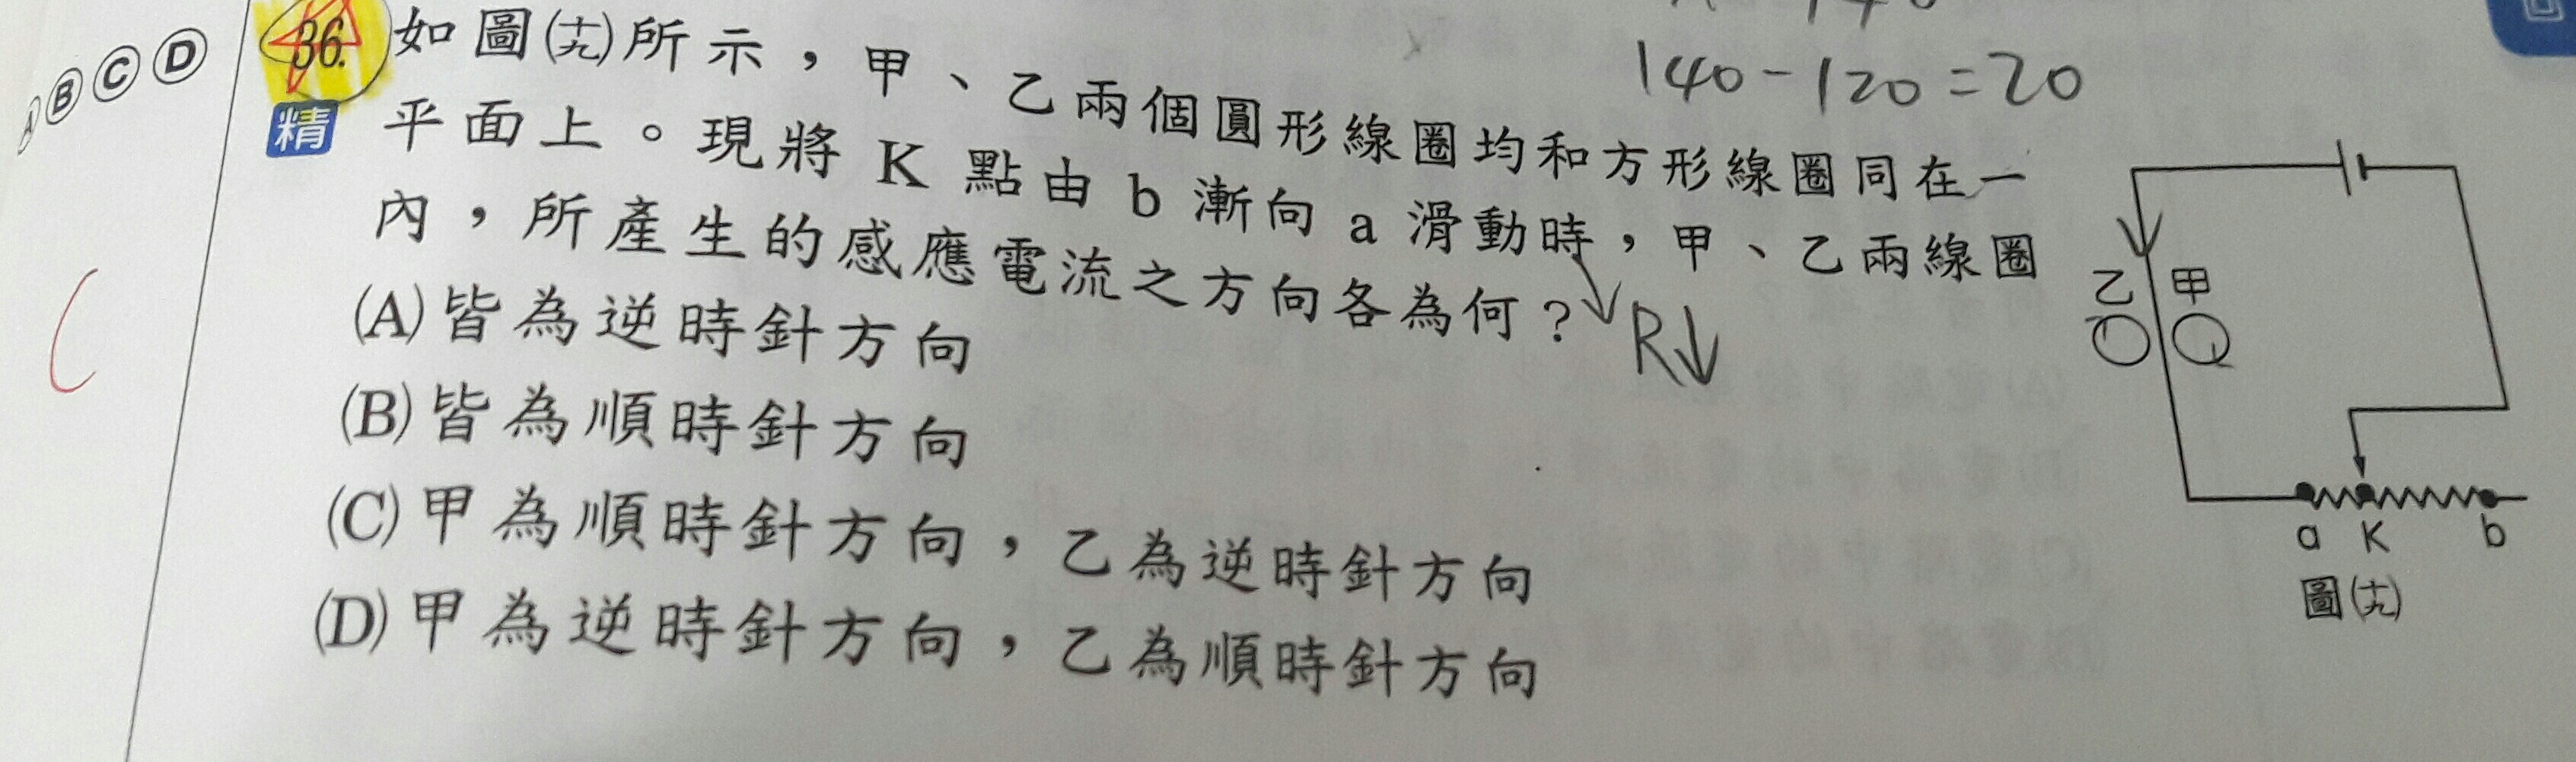 140-120=20
Ⓑ Ⓒ Ⓓ
36. 如圖(十九)所示，甲、乙兩個圓形線圈均和方形線圈同在一
精 平面上。現將 K 點由 b 漸向 a 滑動時，甲、乙兩線圈
內，所產生的感應電流之方向各為何？
R↓
(A)皆為逆時針方向
(B)皆為順時針方向
(C)甲為順時針方向，乙為逆時針方向
(D)甲為逆時針方向，乙為順時針方向
C
乙 甲
a K b
圖(十九)